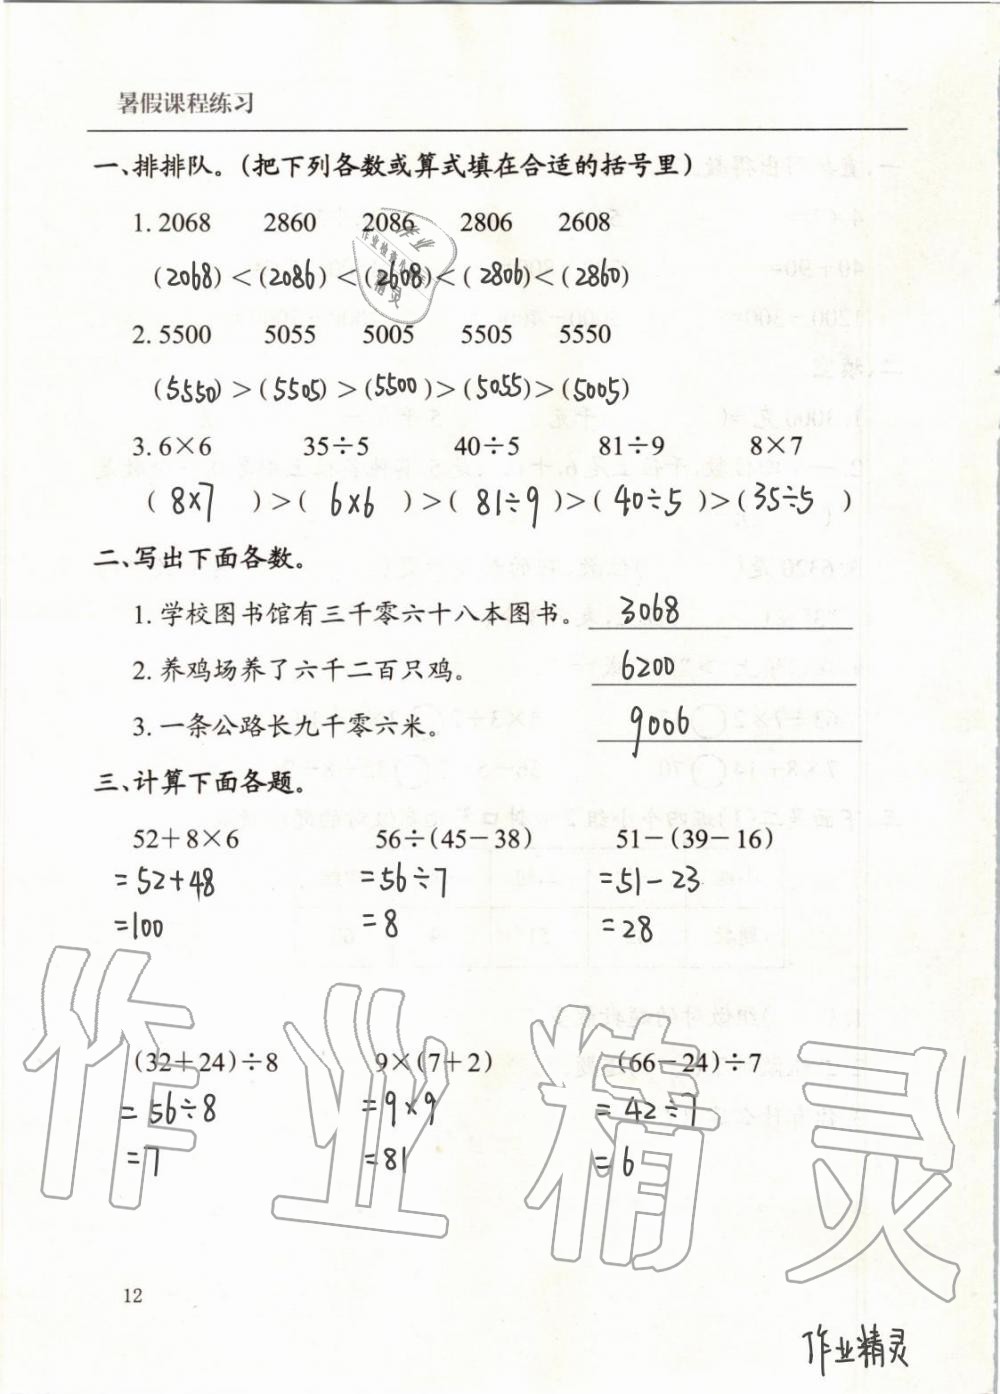 暑假课程练习
一、排排队。(把下列各数或算式填在合适的括号里)
1. 2068 2860 2086 2806 2608
(2068)<(2086)<(2608)<(2806)<(2860)
2. 5500 5055 5005 5505 5550
(5550)>(5505)>(5500)>(5055)>(5005)
3. 6×6 35÷5 40÷5 81÷9 8×7
(8×7)>(6×6)>(81÷9)>(40÷5)>(35÷5)
二、写出下面各数。
1. 学校图书馆有三千零六十八本图书。 3068
2. 养鸡场养了六千二百只鸡。 6200
3. 一条公路长九千零六米。 9006
三、计算下面各题。
52+8×6 56÷(45-38) 51-(39-16)
=52+48 =56÷7 =51-23
=100 =8 =28
(32+24)÷8 9×(7+2) (66-24)÷7
=56÷8 =9×9 =42÷7
=7 =81 =6
作业精灵
12
作业精灵